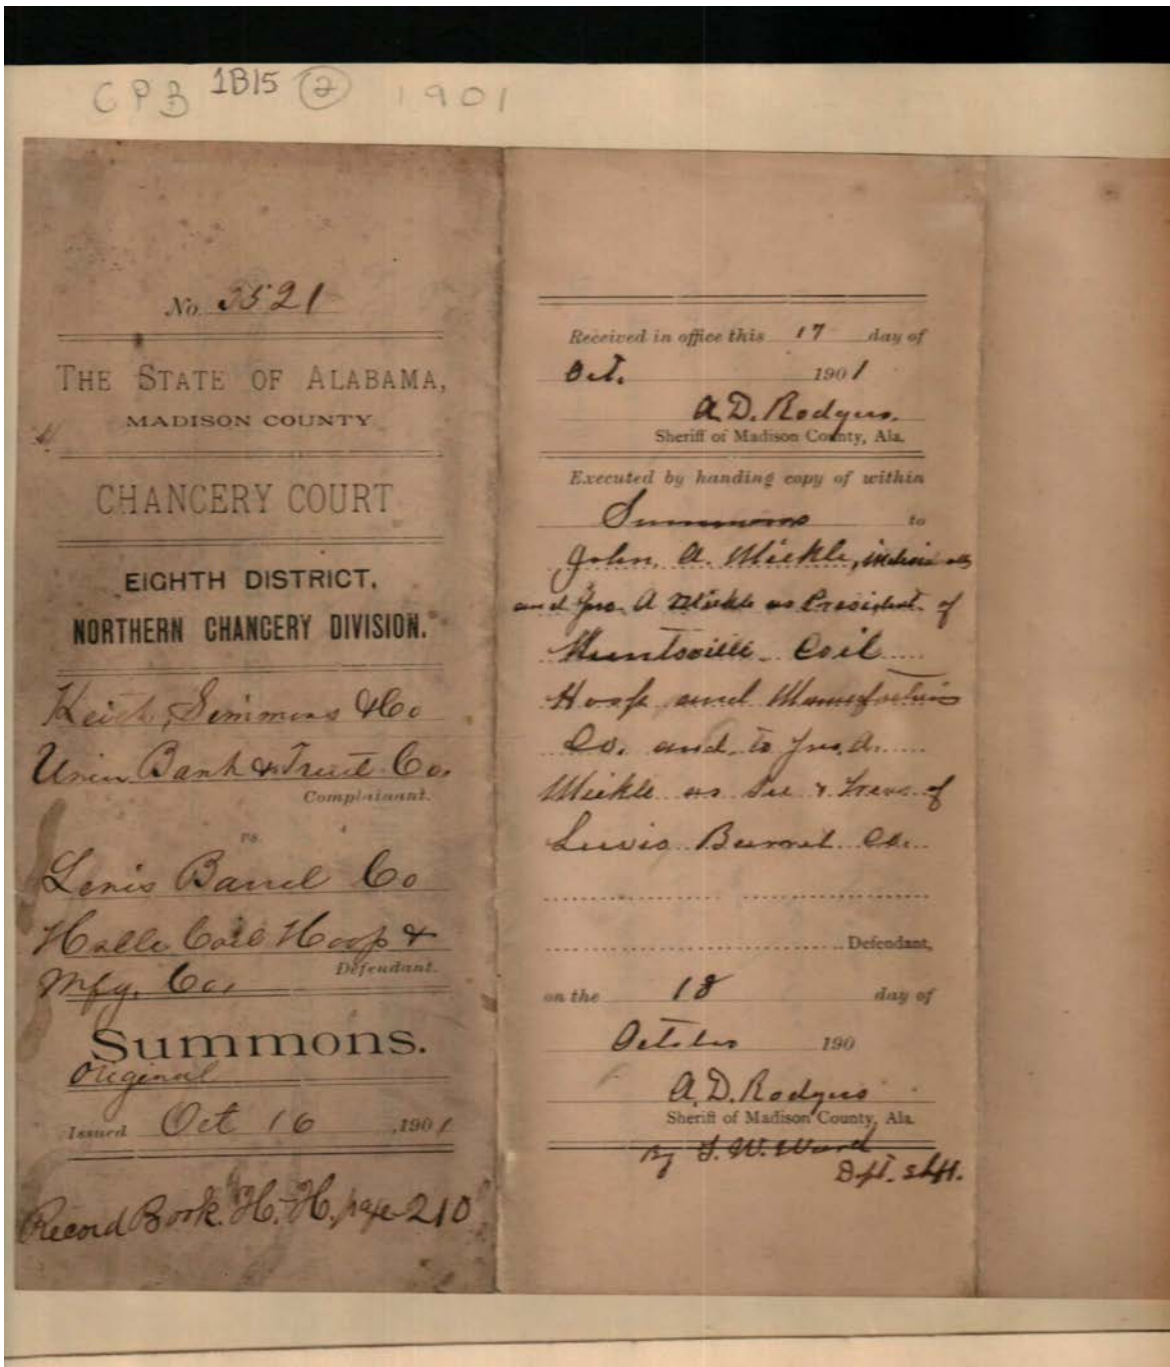 CPB 1B15 2 1901
No. 3521
THE STATE OF ALABAMA,
MADISON COUNTY
CHANCERY COURT
EIGHTH DISTRICT,
NORTHERN CHANCERY DIVISION.
Keith, Simmons & Co
Union Bank & Trust Co.
Complainant.
vs.
Lewis Barrel Co
Hville Coil Hoop &
Defendant.
Mfg. Co.
Summons.
Original
Issued Oct 16, 1901
Record Book. H. H. page 210
Received in office this 17 day of
Oct. 1901
A. D. Rodgers.
Sheriff of Madison County, Ala.
Executed by handing copy of within
Summons to
John. A. Mickle,
and Jno. A Mickle as President of
Huntsville Coil
Hoop and
Co. and to Jno. A.
Mickle as Sec & Treas. of
Lewis Barrel Co.
Defendant,
on the 18 day of
October 190
A. D. Rodgers
Sheriff of Madison County, Ala.
By W. Ward
Dpt. Shff.